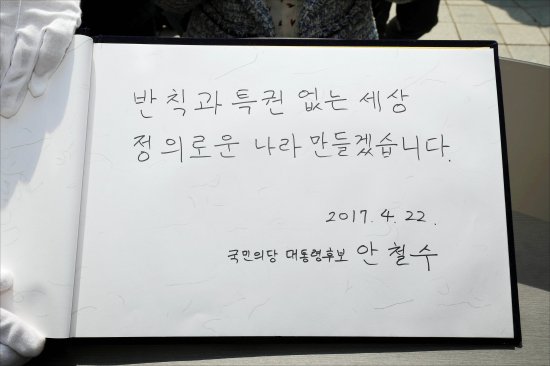 반칙과 특권 없는 세상
정의로운 나라 만들겠습니다.
2017. 4. 22.
국민의당 대통령후보 안철수